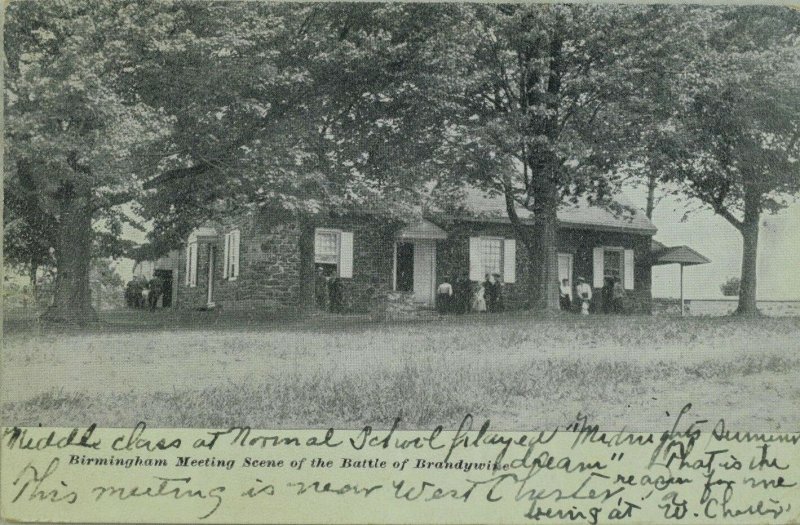 Middle class at Normal School played "Midnight Summer
dream" That is the
Birmingham Meeting Scene of the Battle of Brandywine
reason for me
This meeting is near West Chester,
being at W. Chester